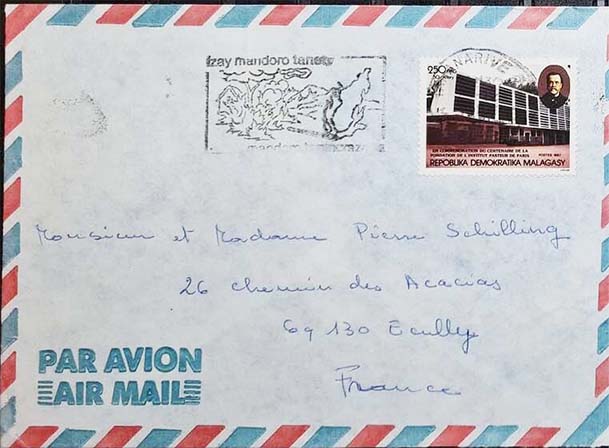 Izay mandoro tanety
mandoro tanindrazana
NARIVE
250 FMG
EN COMMEMORATION DU CENTENAIRE DE LA
FONDATION DE L'INSTITUT PASTEUR DE PARIS
POSTES 1987
REPOBLIKA DEMOKRATIKA MALAGASY
Monsieur et Madame Pierre Schilling
26 chemin des Acacias
69 130 Ecully
France
PAR AVION
AIR MAIL